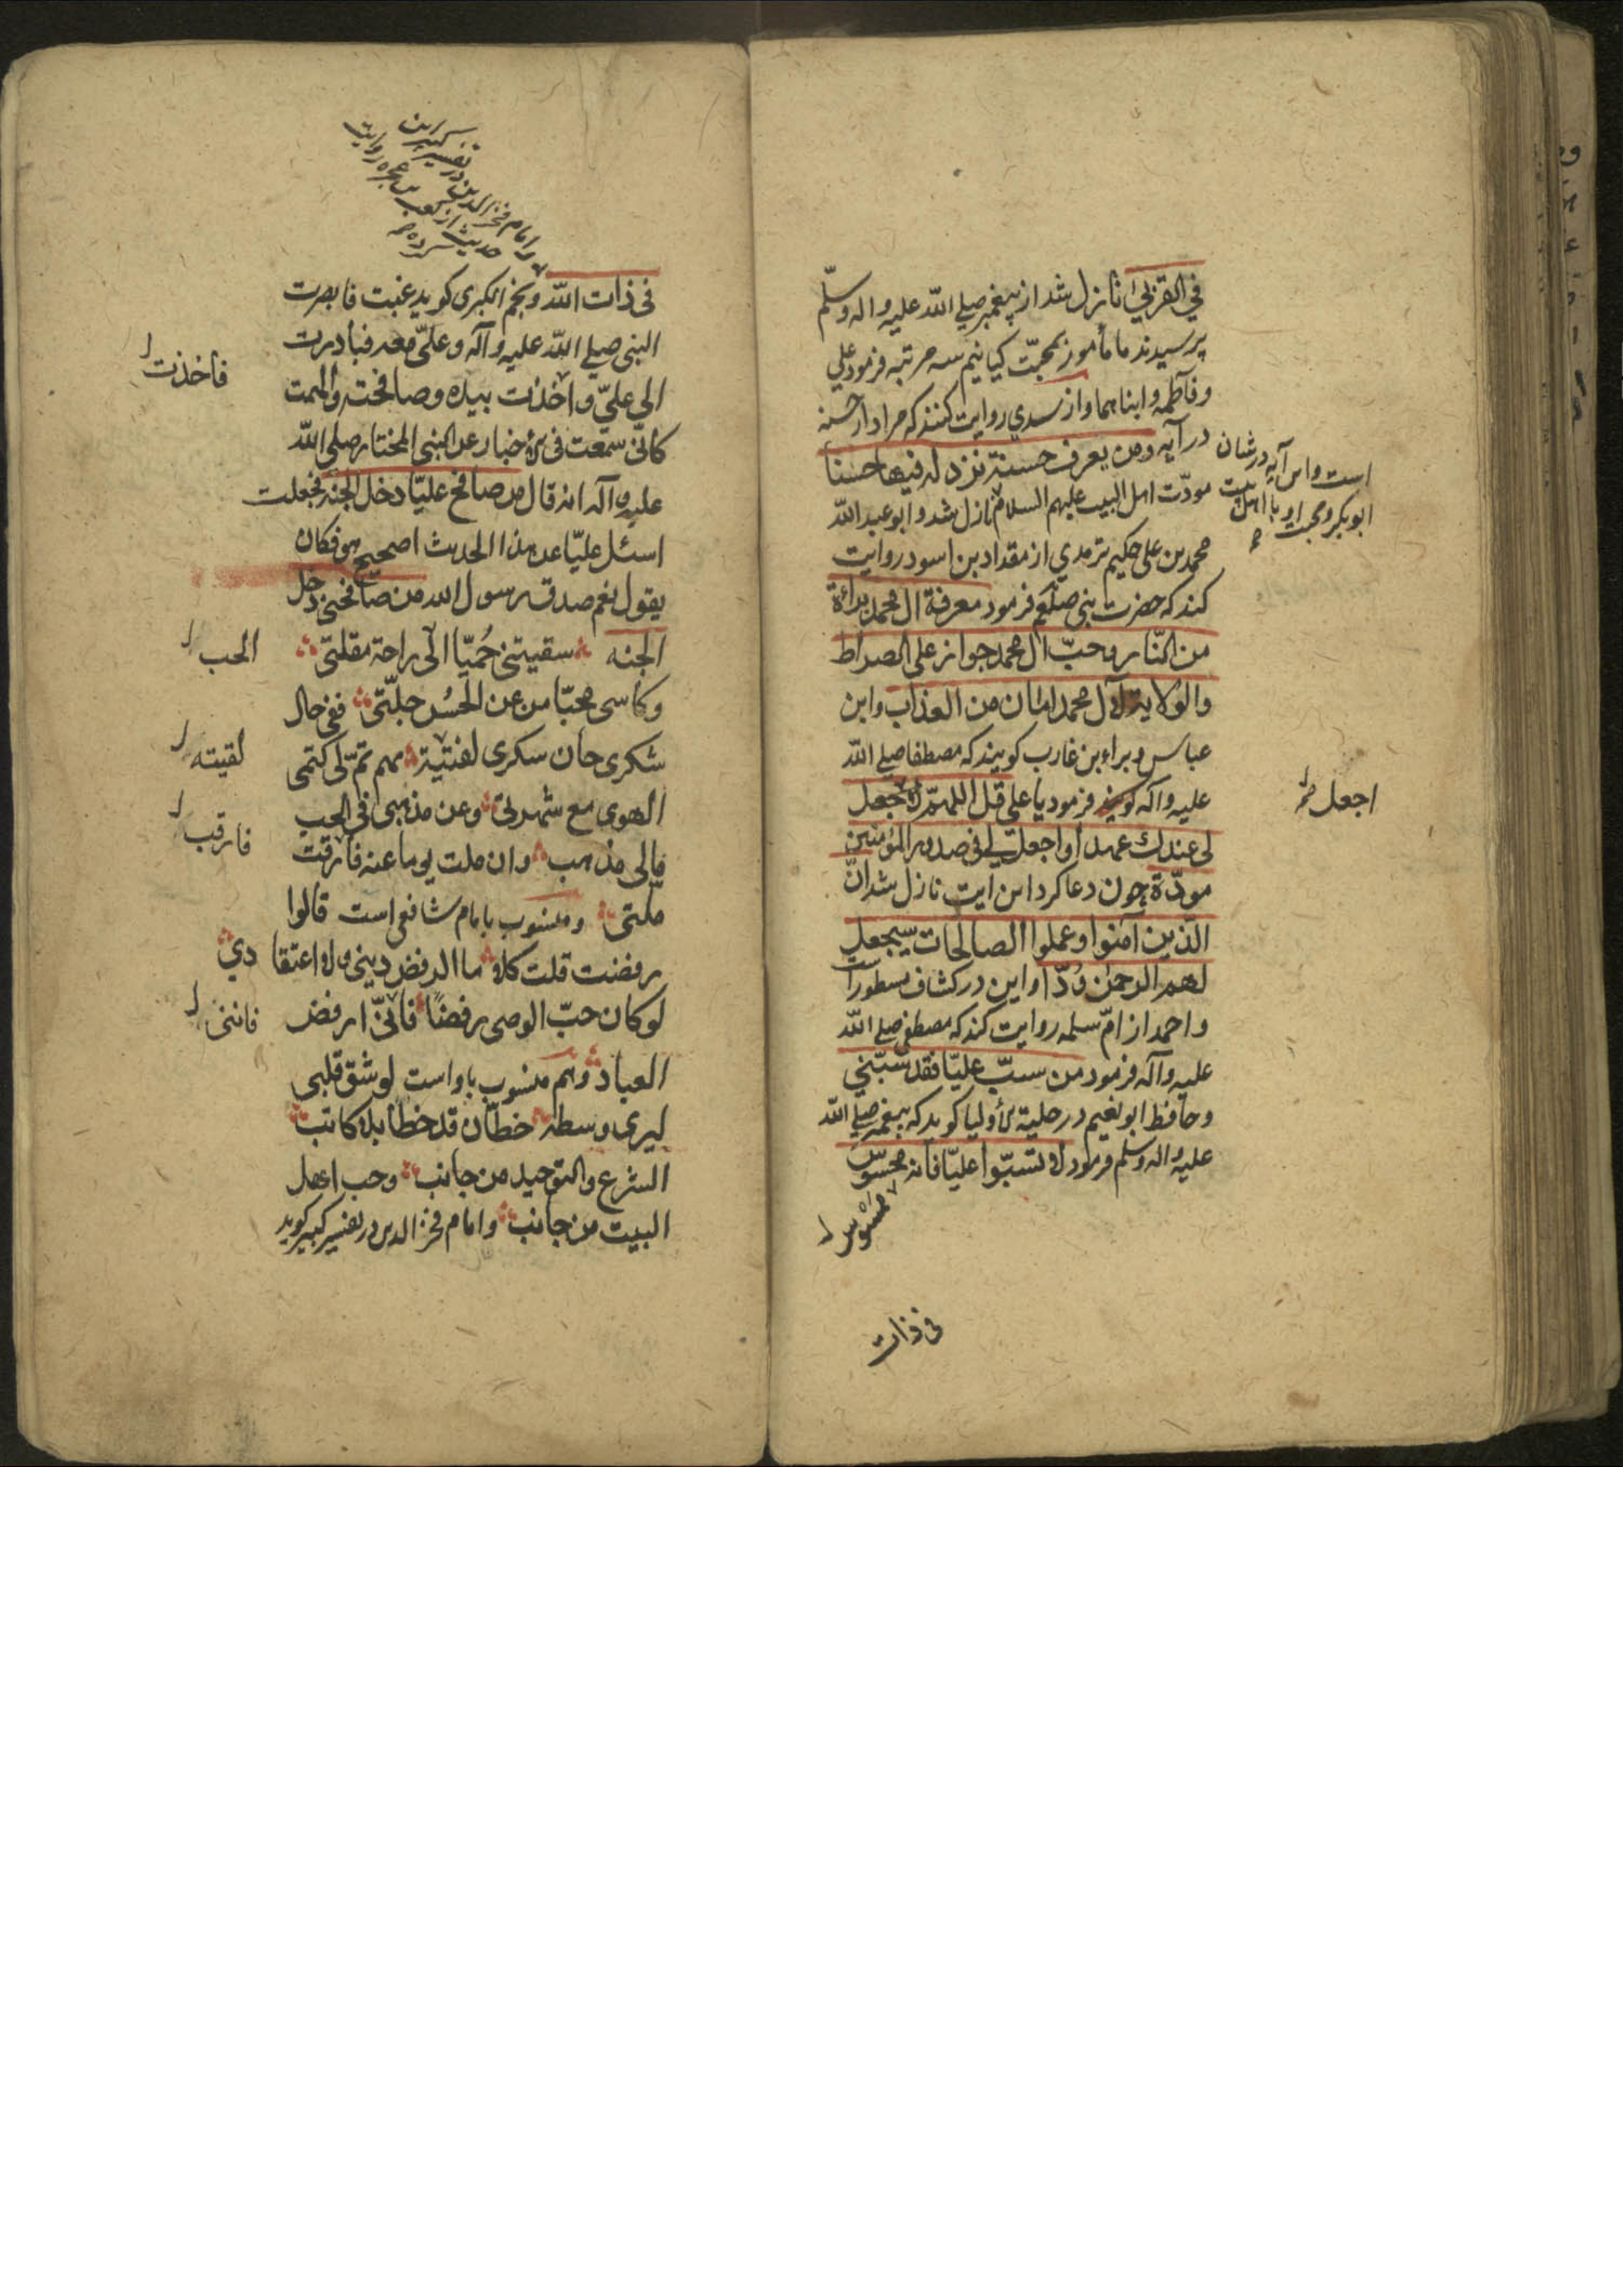 في القربى نازل شد از پیغمبر صلی الله علیه واله وسلّم
پرسیدند ما مأمور بمحبّت کیانیم سه مرتبه فرمود علي
وفاطمه وابناهما واز سدي روایت کنند که مراد از حسنه
در آیه ومن یعرف حسنة نزد له فیها حسنا
است واین آیه در شان
ابوبکر ومحبت او با اهل بیت
مودّت اهل البیت علیهم السلام نازل شد وابو عبد الله
محمد بن علی حکیم ترمدي از مقداد بن اسود روایت
کند که حضرت نبی صلعم فرمود معرفة ال محمد براءة
من النّار وحبّ ال محمد جواز علی الصراط
والولایة لآل محمد امان من العذاب وابن
عباس وبراء بن غارب کویند که مصطفا صلی الله
علیه واله کویند فرمود یا علی قل اللهمّ لا تجعل
اجعل
لی عندك عهدا واجعل لي فی صدور المؤمنین
مودّة چون دعا کرد این ایت نازل شد انّ
الذین آمنوا وعملوا الصالحات سیجعل
لهم الرحمن وُدّا واین در کشاف مسطور است
واحمد از امّ سلمه روایت کند که مصطفی صلی الله
علیه وآله فرمود من سبّ علیّا فقد سبّني
وحافظ ابو نعیم در حلیة الأولیا کوید که پیغمبر صلی الله
علیه واله وسلم فرمود لا تسبّوا علیّا فانه محسوس
ممسوس
فی ذات
وامام فخر الدین در تفسیر کبیر این
حدیث از کعب بن عجره روایت
کرده
فی ذات الله ونجم الکبری کوید غبت فابصرت
النبی صلی الله علیه وآله وعلیّ معه فبادرت
الی علیّ واخذت بیده وصافحته والهمت
فأخذت
کانّی سمعت فی الأخبار عن النبی المختار صلی الله
علیه وآله انه قال من صافح علیّا دخل الجنه فجعلت
اسئل علیّا عن هذا الحدیث اصحیح هو فکان
یقول نعم صدق رسول الله من صافحنی دخل
الجنه سقیتنی حُمیّا الی راحة مقلتی
الحب
وکأسی محیّا من عن الحُسن جلّتی ففی حال
شکری حان سکری لفتیة بهم تمّ لی کتمی
لقیته
الهوی مع شهرتی وعن مذهبی فی الحب
مالی مذهب وان ملت یوما عنه فارقت
فارقت
ملتی ومنسوب بامام شافعی است قالوا
رفضت قلت کلا ما الرفض دینی ولا اعتقادي
لو کان حبّ الوصی رفضًا فانّی ارفض
فاننی
العباد وهم منسوب باواست لو شق قلبی
لیری وسطه خطّان قد خطّا بلا کاتب
الشرع والتوحید من جانب وحب اهل
البیت من جانب وامام فخر الدین در تفسیر کبیر کوید